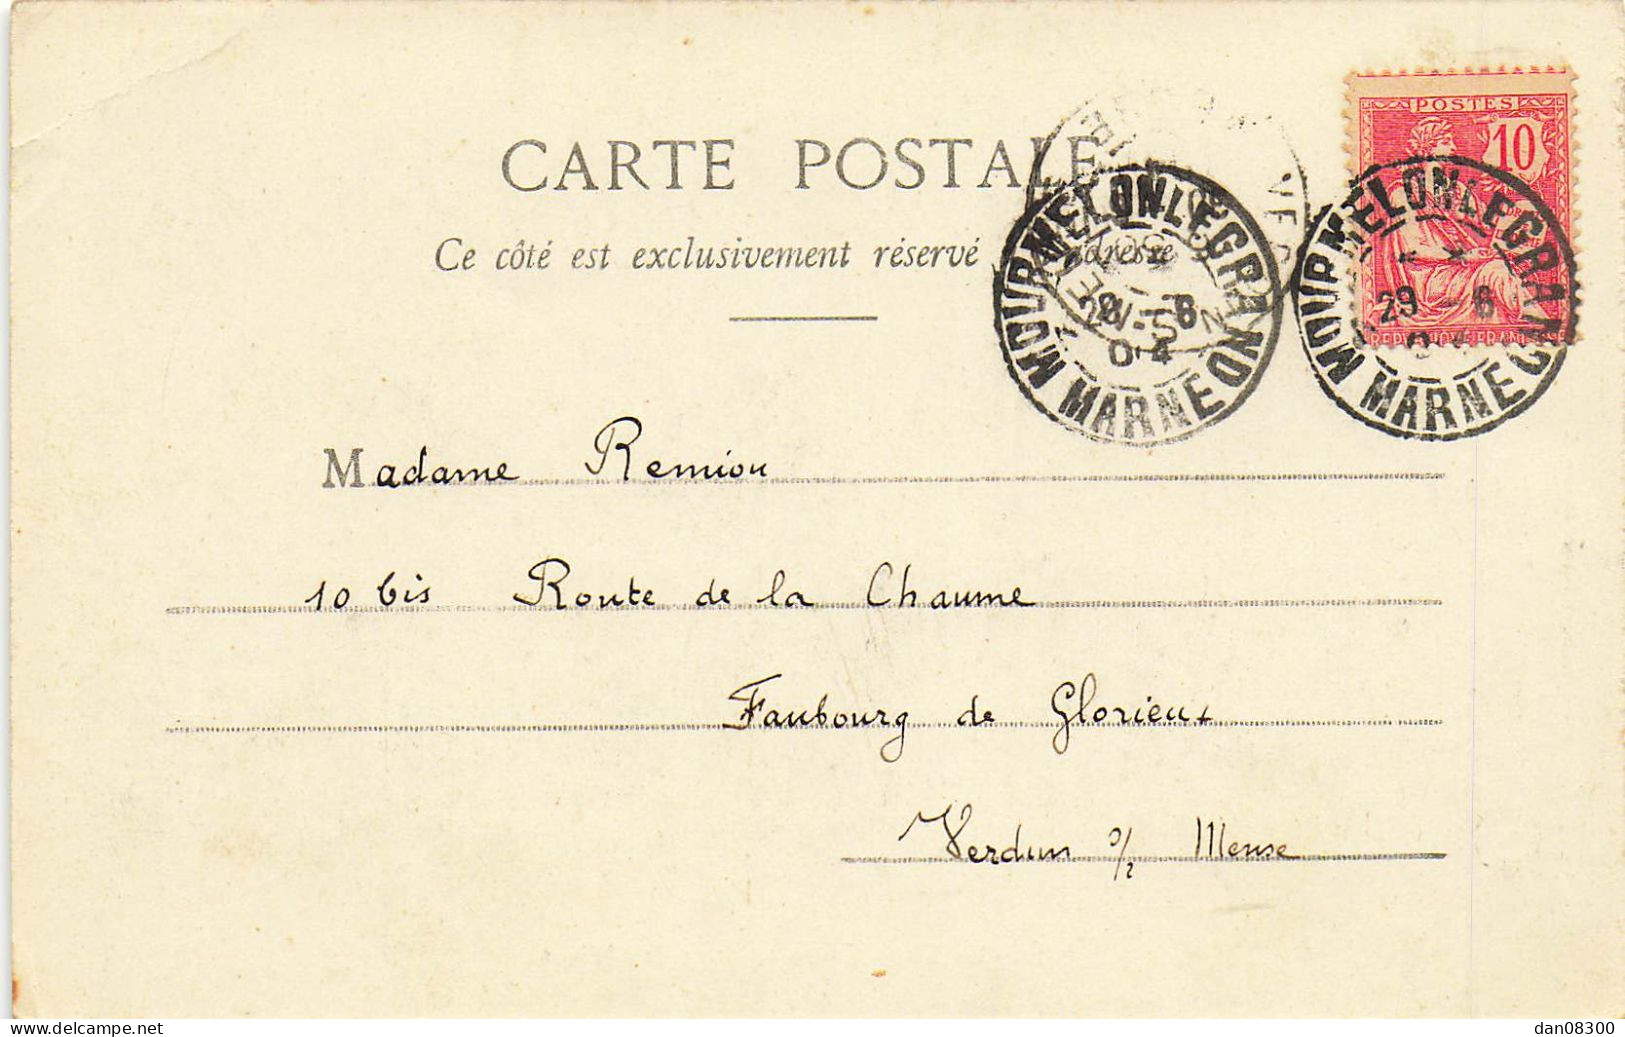 POSTES
10
CARTE POSTALE
Ce côté est exclusivement réservé adresse
MOURMELON LE GRAND
29 - 6
04
MARNE
MOURMELON LE GRAND
29 - 6
04
MARNE
Madame Remiou
10 bis Route de la Chaume
Faubourg de Glorieux
Verdun s/ Meuse
www.delcampe.net
dan08300